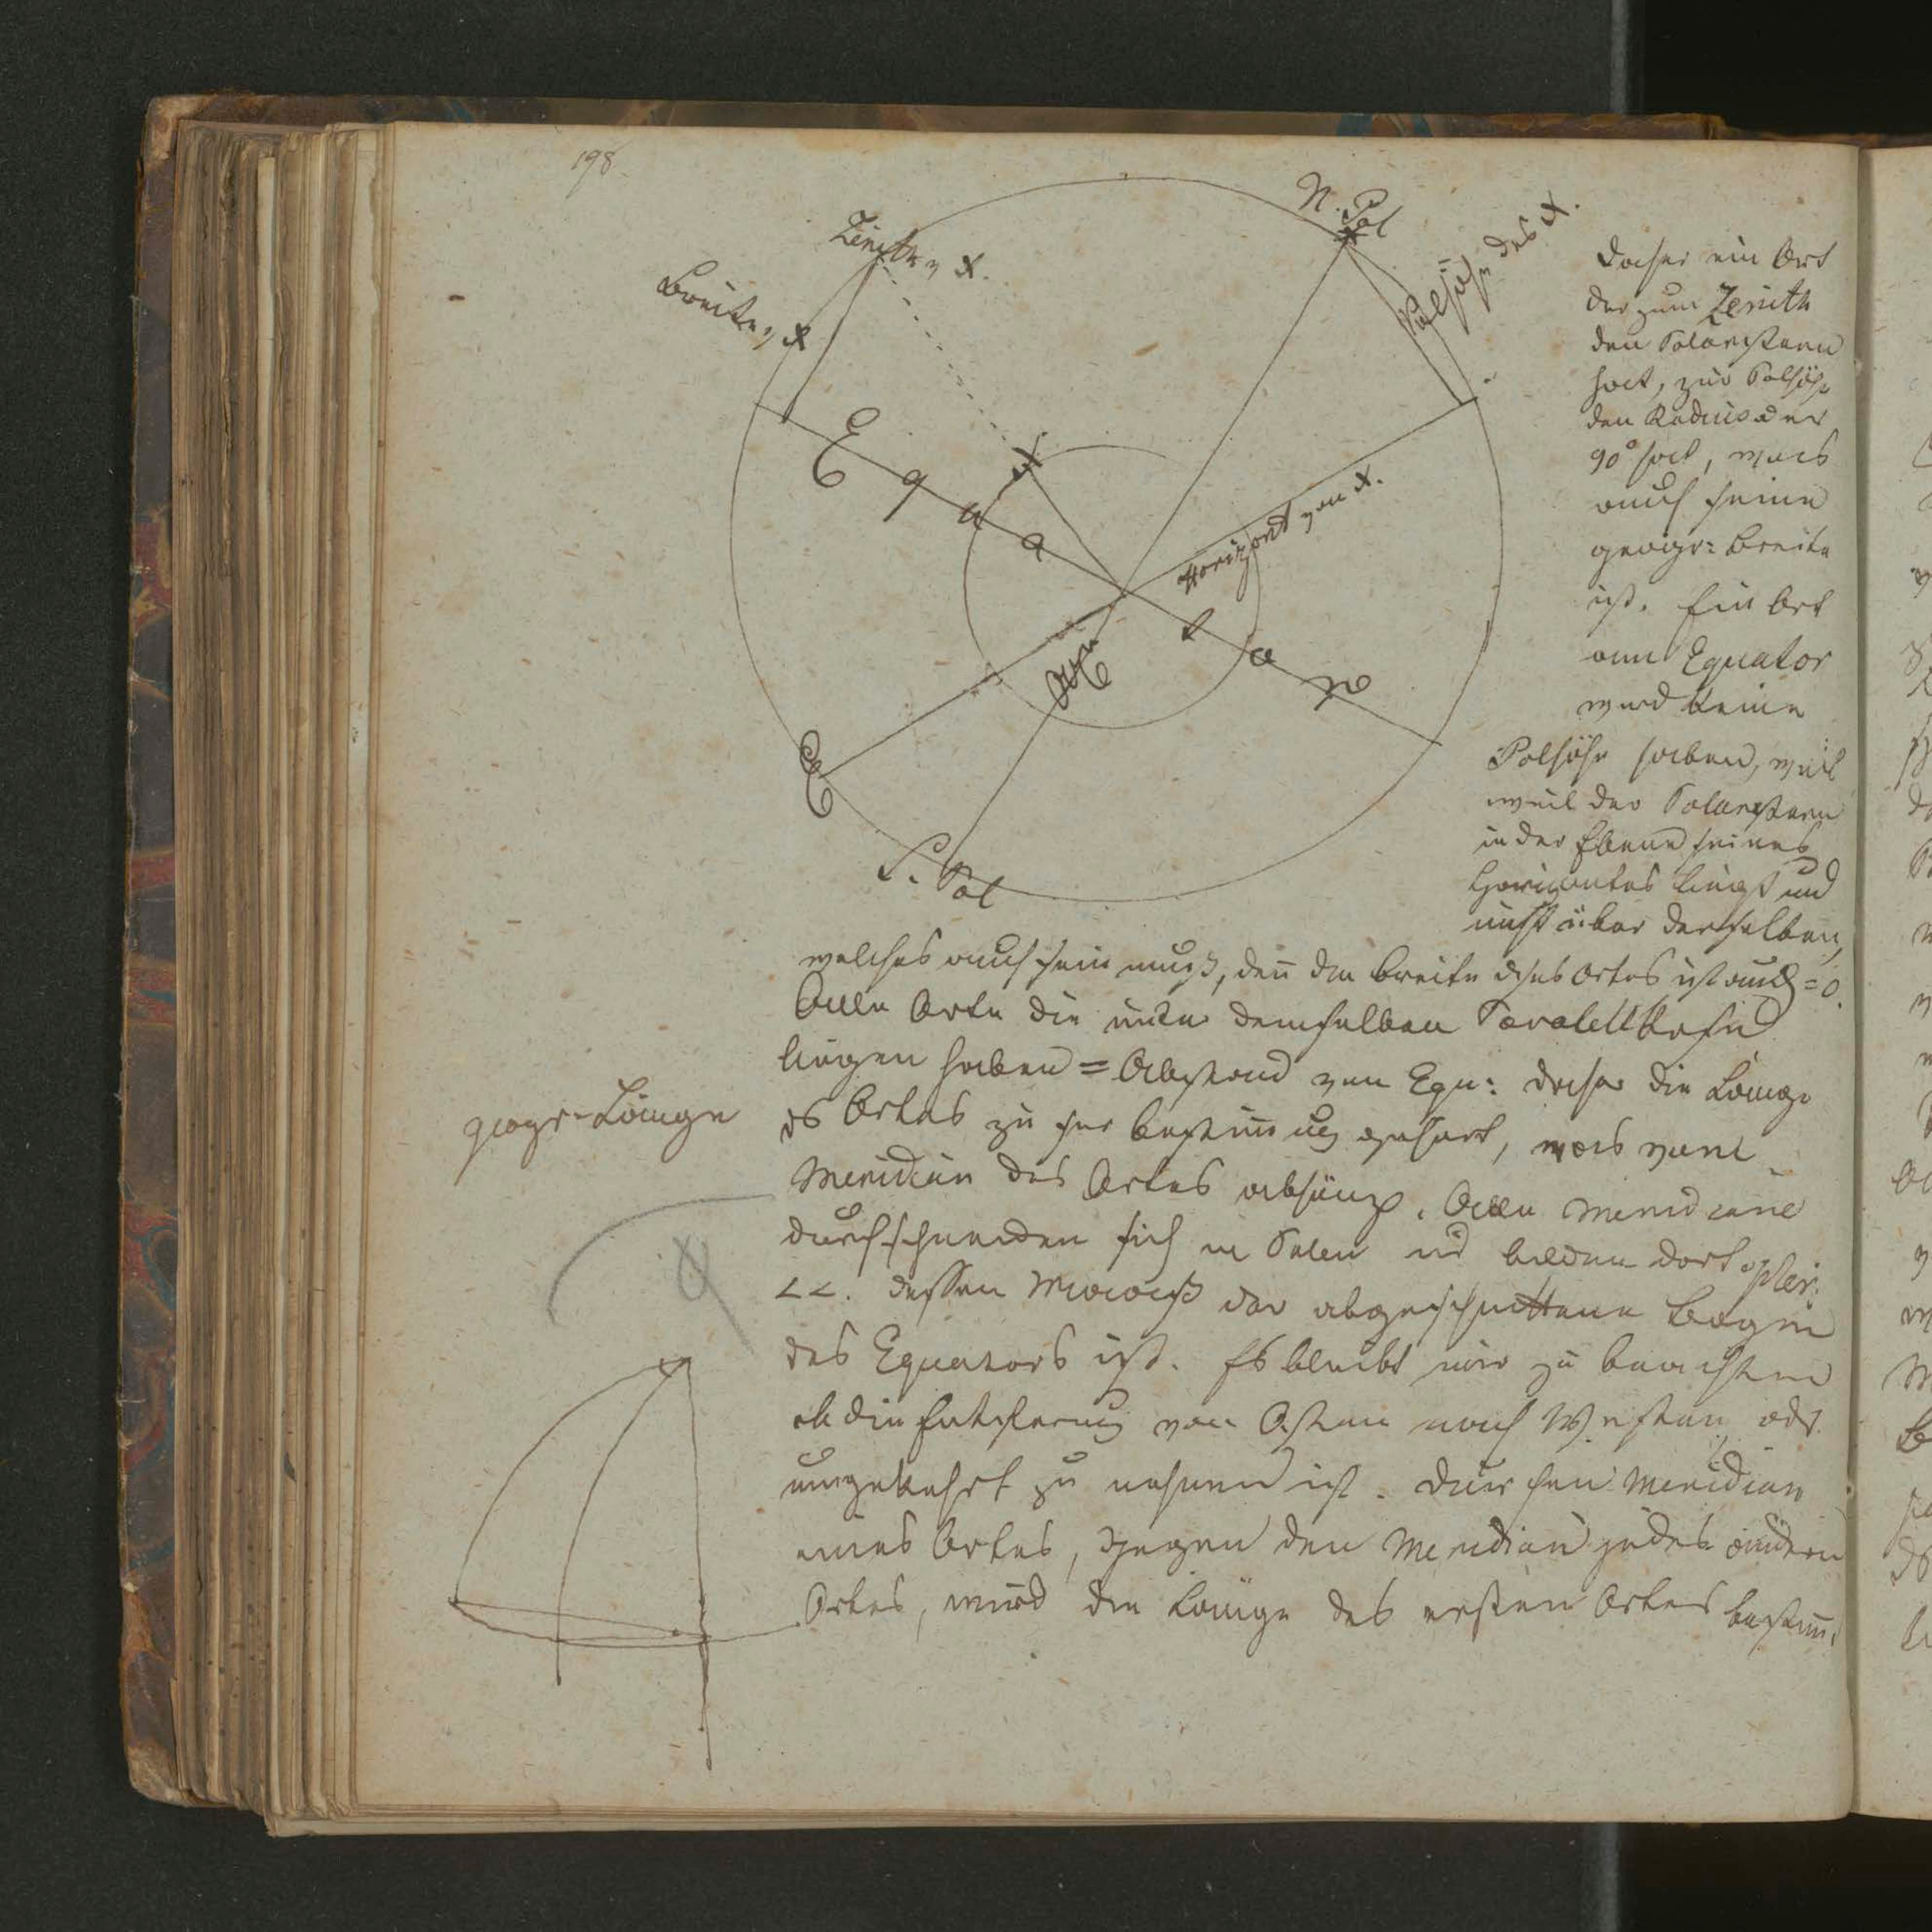 198.
N. Pol
Zenith v X.
Polhöhe des X.
Breite v X
Equa
X
Horizont von X.
tor
Axe
E
S. Pol
Daher ein Ort
der zum Zenith
den Polarstern
hat, zur Polhöhe
den Radius oder
90° hat, was
auch seine
geogr: Breite
ist. Ein Ort
am Equator
wird keine
Polhöhe haben, weil
weil der Polarstern
in der Ebene seines
Horizontes liegt und
nicht über derselben,
welches auch sein muß, den die Breite dises Ortes ist auch = 0.
Alle Orte die unter demselben Parallelkreise
liegen haben = Abstand vom Equ: daher die Länge
ds Ortes zu sr Bestimug gehört, was vom
geogr. Länge
Meridian des Ortes abhängt. Alle Meridiane
durchschneiden sich in Polen ud bilden dort
<<. dessen Maaß der abgeschnittene Bogen
des Equators ist. Es bleibt nur zu beachten
ob die Entfernug von Osten nach Westen, odr
umgekehrt zu nehmen ist. Durch den Meridian
eines Ortes, gegen den Meridian jedes andern
Ortes, wird die Länge des ersten Ortes bestim̅,